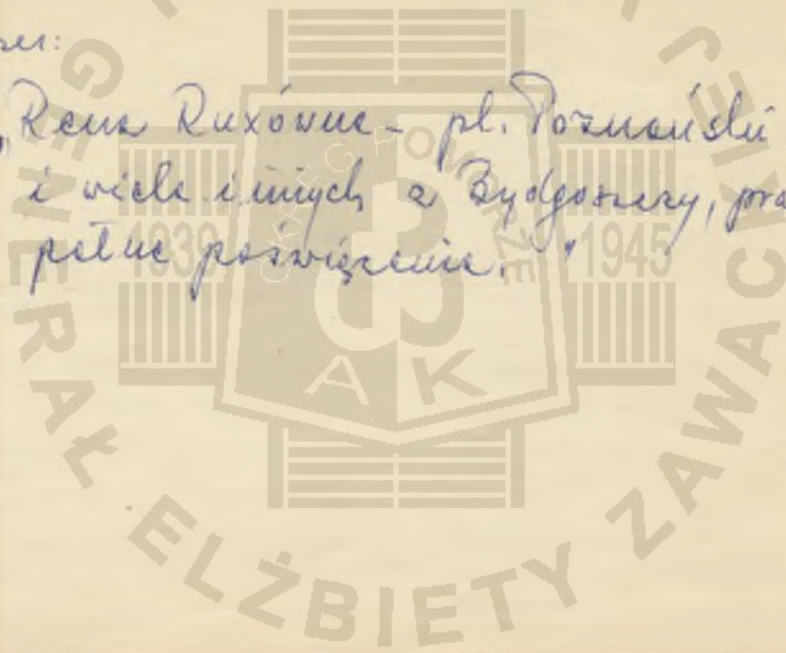 „Rena Ruxówna - pl. Poznański
i wiele innych z Bydgoszczy,
pełne poświęcenia."
1939 1945
AK
GENERAŁ ELŻBIETY ZAWACKIEJ